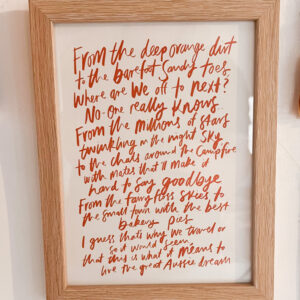 From the deep orange dirt
to the barefoot sandy toes
Where are we off to next?
No-one really knows
From the millions of stars
twinkling in the night sky
to the chats around the campfire
with mates that'll make it
hard to say goodbye
From the fairy floss skies to
the small town with the best
bakery pies
I guess that's why we travel or
so it would seem
that this is what it means to
live the great Aussie dream